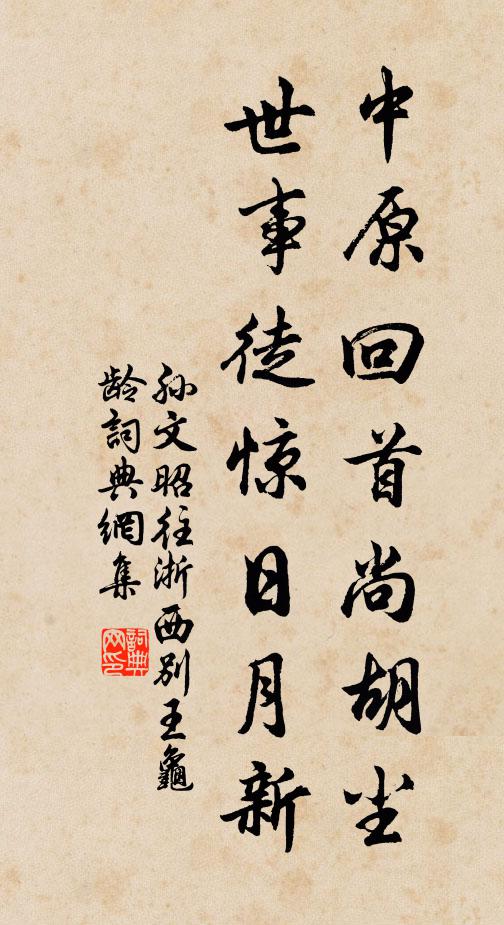 中原回首尚胡尘
世事徒惊日月新
孙文昭往浙西别王龜
龄詞典網集
詞典网印